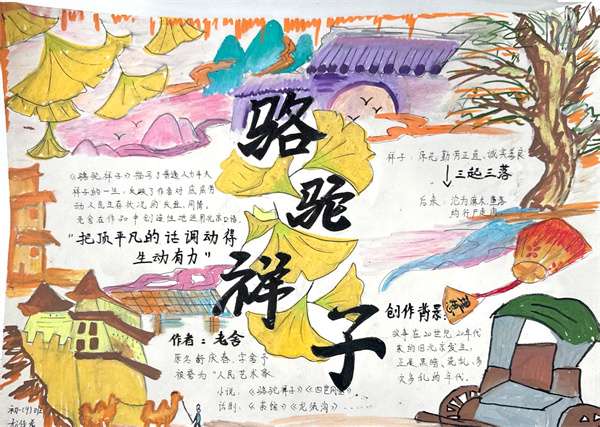 骆驼祥子
《骆驼祥子》描写了普通人力车夫
祥子的一生，反映了作者对底层劳
动人民生存状况的关注、同情。
老舍在作品中创造性地运用北京口语，
"把顶平凡的话调动得
生动有力"
祥子：原先 勤劳正直、诚实善良
三起三落
后来：沦为麻木、堕落
的行尸走肉
创作背景
故事在20世纪20年代
末的旧北京发生，
正是黑暗、混乱、多
灾多乱的年代。
作者：老舍
原名舒庆春，字舍予
被誉为"人民艺术家
小说：《骆驼祥子》《四世同堂》
话剧：《茶馆》《龙须沟》……
初一(9)班